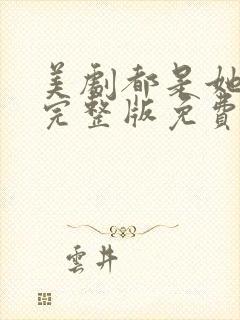 美劇都是她
完整版免費
雲井